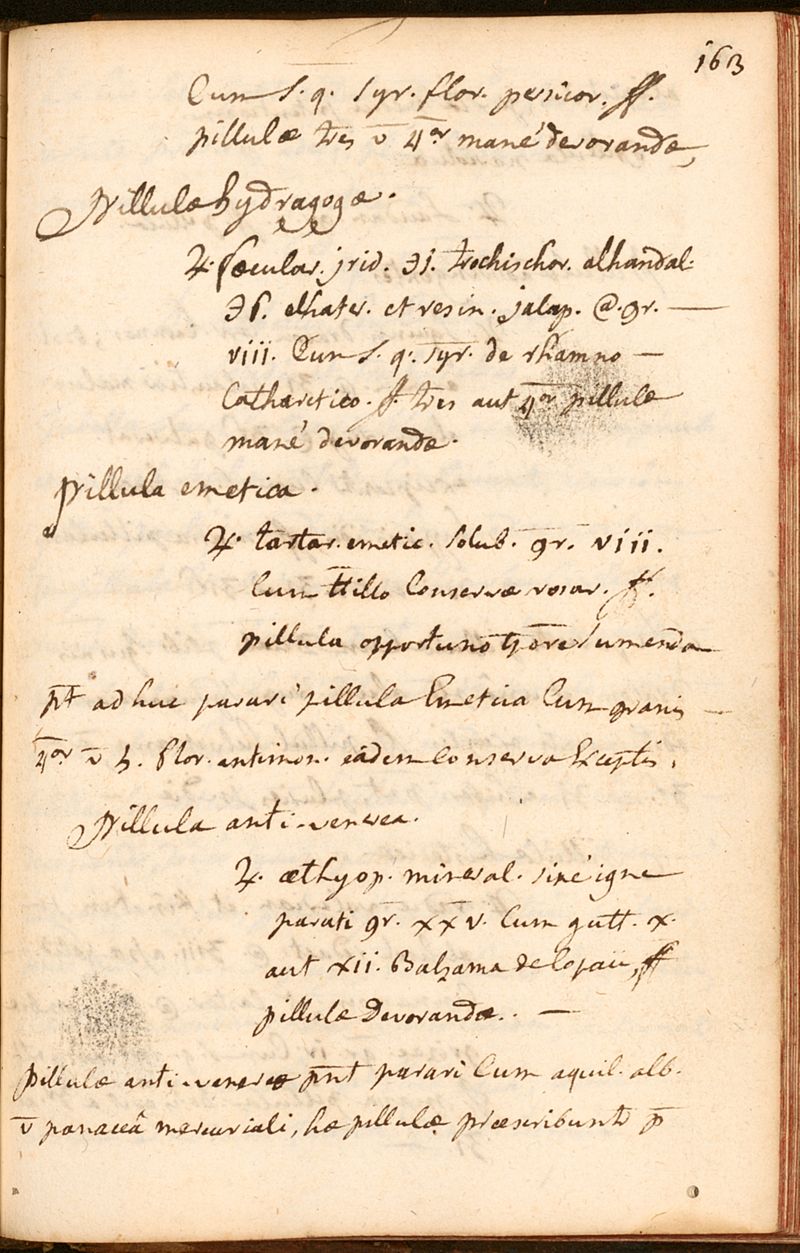 163
Cum s. q. syr. flor. persicor. ff.
pillulæ tres v̄ 4or mané devorandæ,
Pillulæ hydragogæ.
♃. fæcular. jrid. ℈j. trochischor. alhandal.
℈ß. elhater. et resin. jalap. @. gr. —
viii. Cum s. q. syr. de rhamno —
Cathartico. ff. tres aut 4or pillulæ
mané devorandæ.
Pillula emetica.
♃. tartar. emetic. solub. gr. viii.
Cum tillo Conservæ rosar. ff.
pillula opportuno tp̄ore sumenda
pt̄ adhuc parari pillula Emetica Cum granis —
4or v̄ 5. flor. antimon. eâdem conserva Exceptis.
Pillula anti-venerea.
♃. æthyop. mineral. siné igne
parati gr. xxv. Cum gutt. x.
aut xii. Balzama de Copaü, ff
pillulæ Devorandæ. —
pillulæ anti-venereæ pn̄t parari Cum aquil. alb.
v̄ panaceâ mercuriali, hæ pillulæ præscribuntr p̄